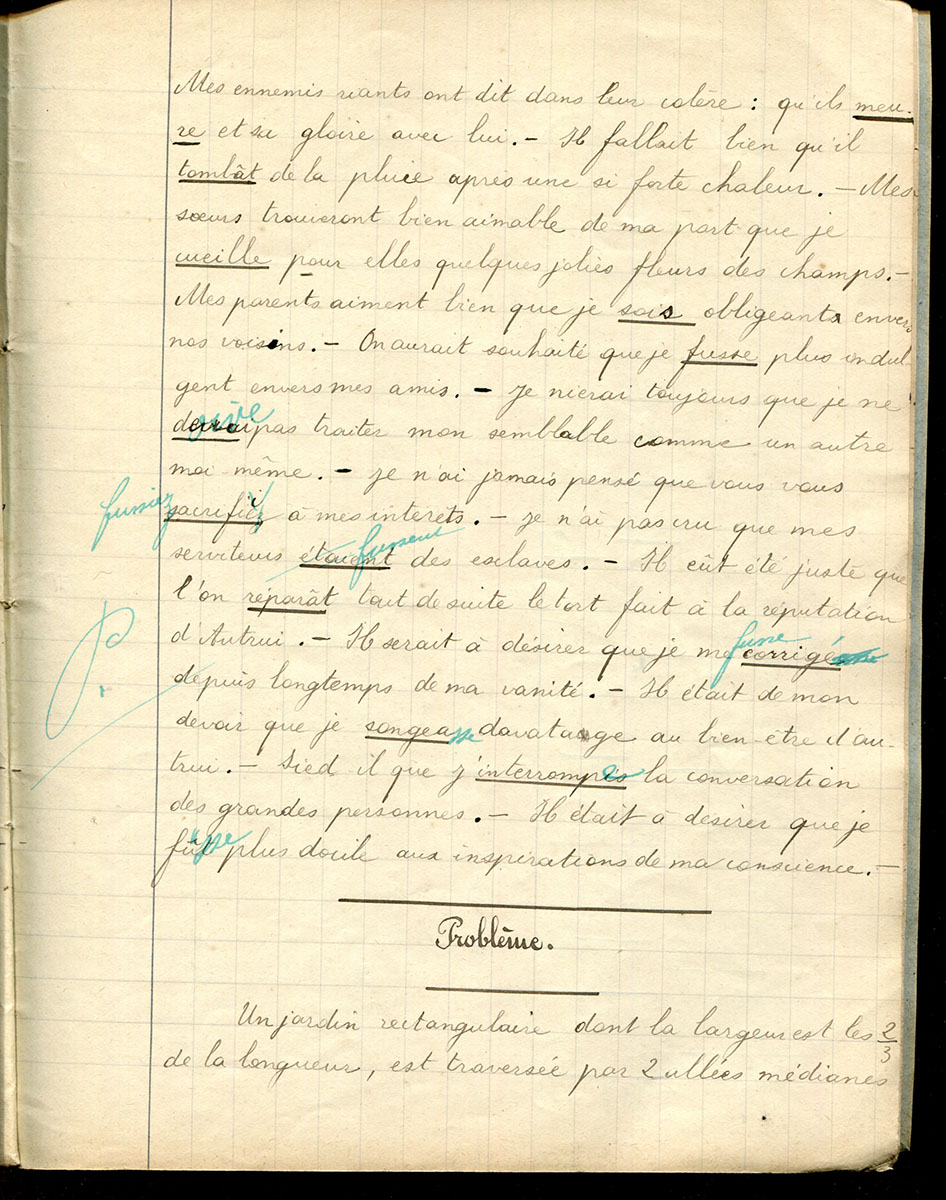 Mes ennemis riants ont dit dans leur colère : qu'ils meu-
re et sa gloire avec lui. — Il fallait bien qu'il
tombât de la pluie après une si forte chaleur. — Mes
sœurs trouveront bien aimable de ma part que je
cueille pour elles quelques jolies fleurs des champs. —
Mes parents aiment bien que je sois obligeant envers
nos voisins. — On aurait souhaité que je fusse plus indul-
gent envers mes amis. — Je nierai toujours que je ne
pas traiter mon semblable comme un autre
moi même. — Je n'ai jamais pensé que vous vous
fussiez sacrifiez à mes interets. — Je n'ai pas cru que mes
serviteurs étaient fussent des esclaves. — Il eût été juste que
l'on réparât tout de suite le tort fait à la réputation
d'Autrui. — Il serait à désirer que je me fusse corrigé
depuis longtemps de ma vanité. — Il était de mon
devoir que je songeasse davatage au bien être d'au-
trui. — Sied il que j'interrompe la conversation
des grandes personnes. — Il était à désirer que je
fusse plus docile aux inspirations de ma conscience. —
Problème.
Un jardin rectangulaire dont la largeur est les 2/3
de la longueur, est traversée par 2 allées médianes